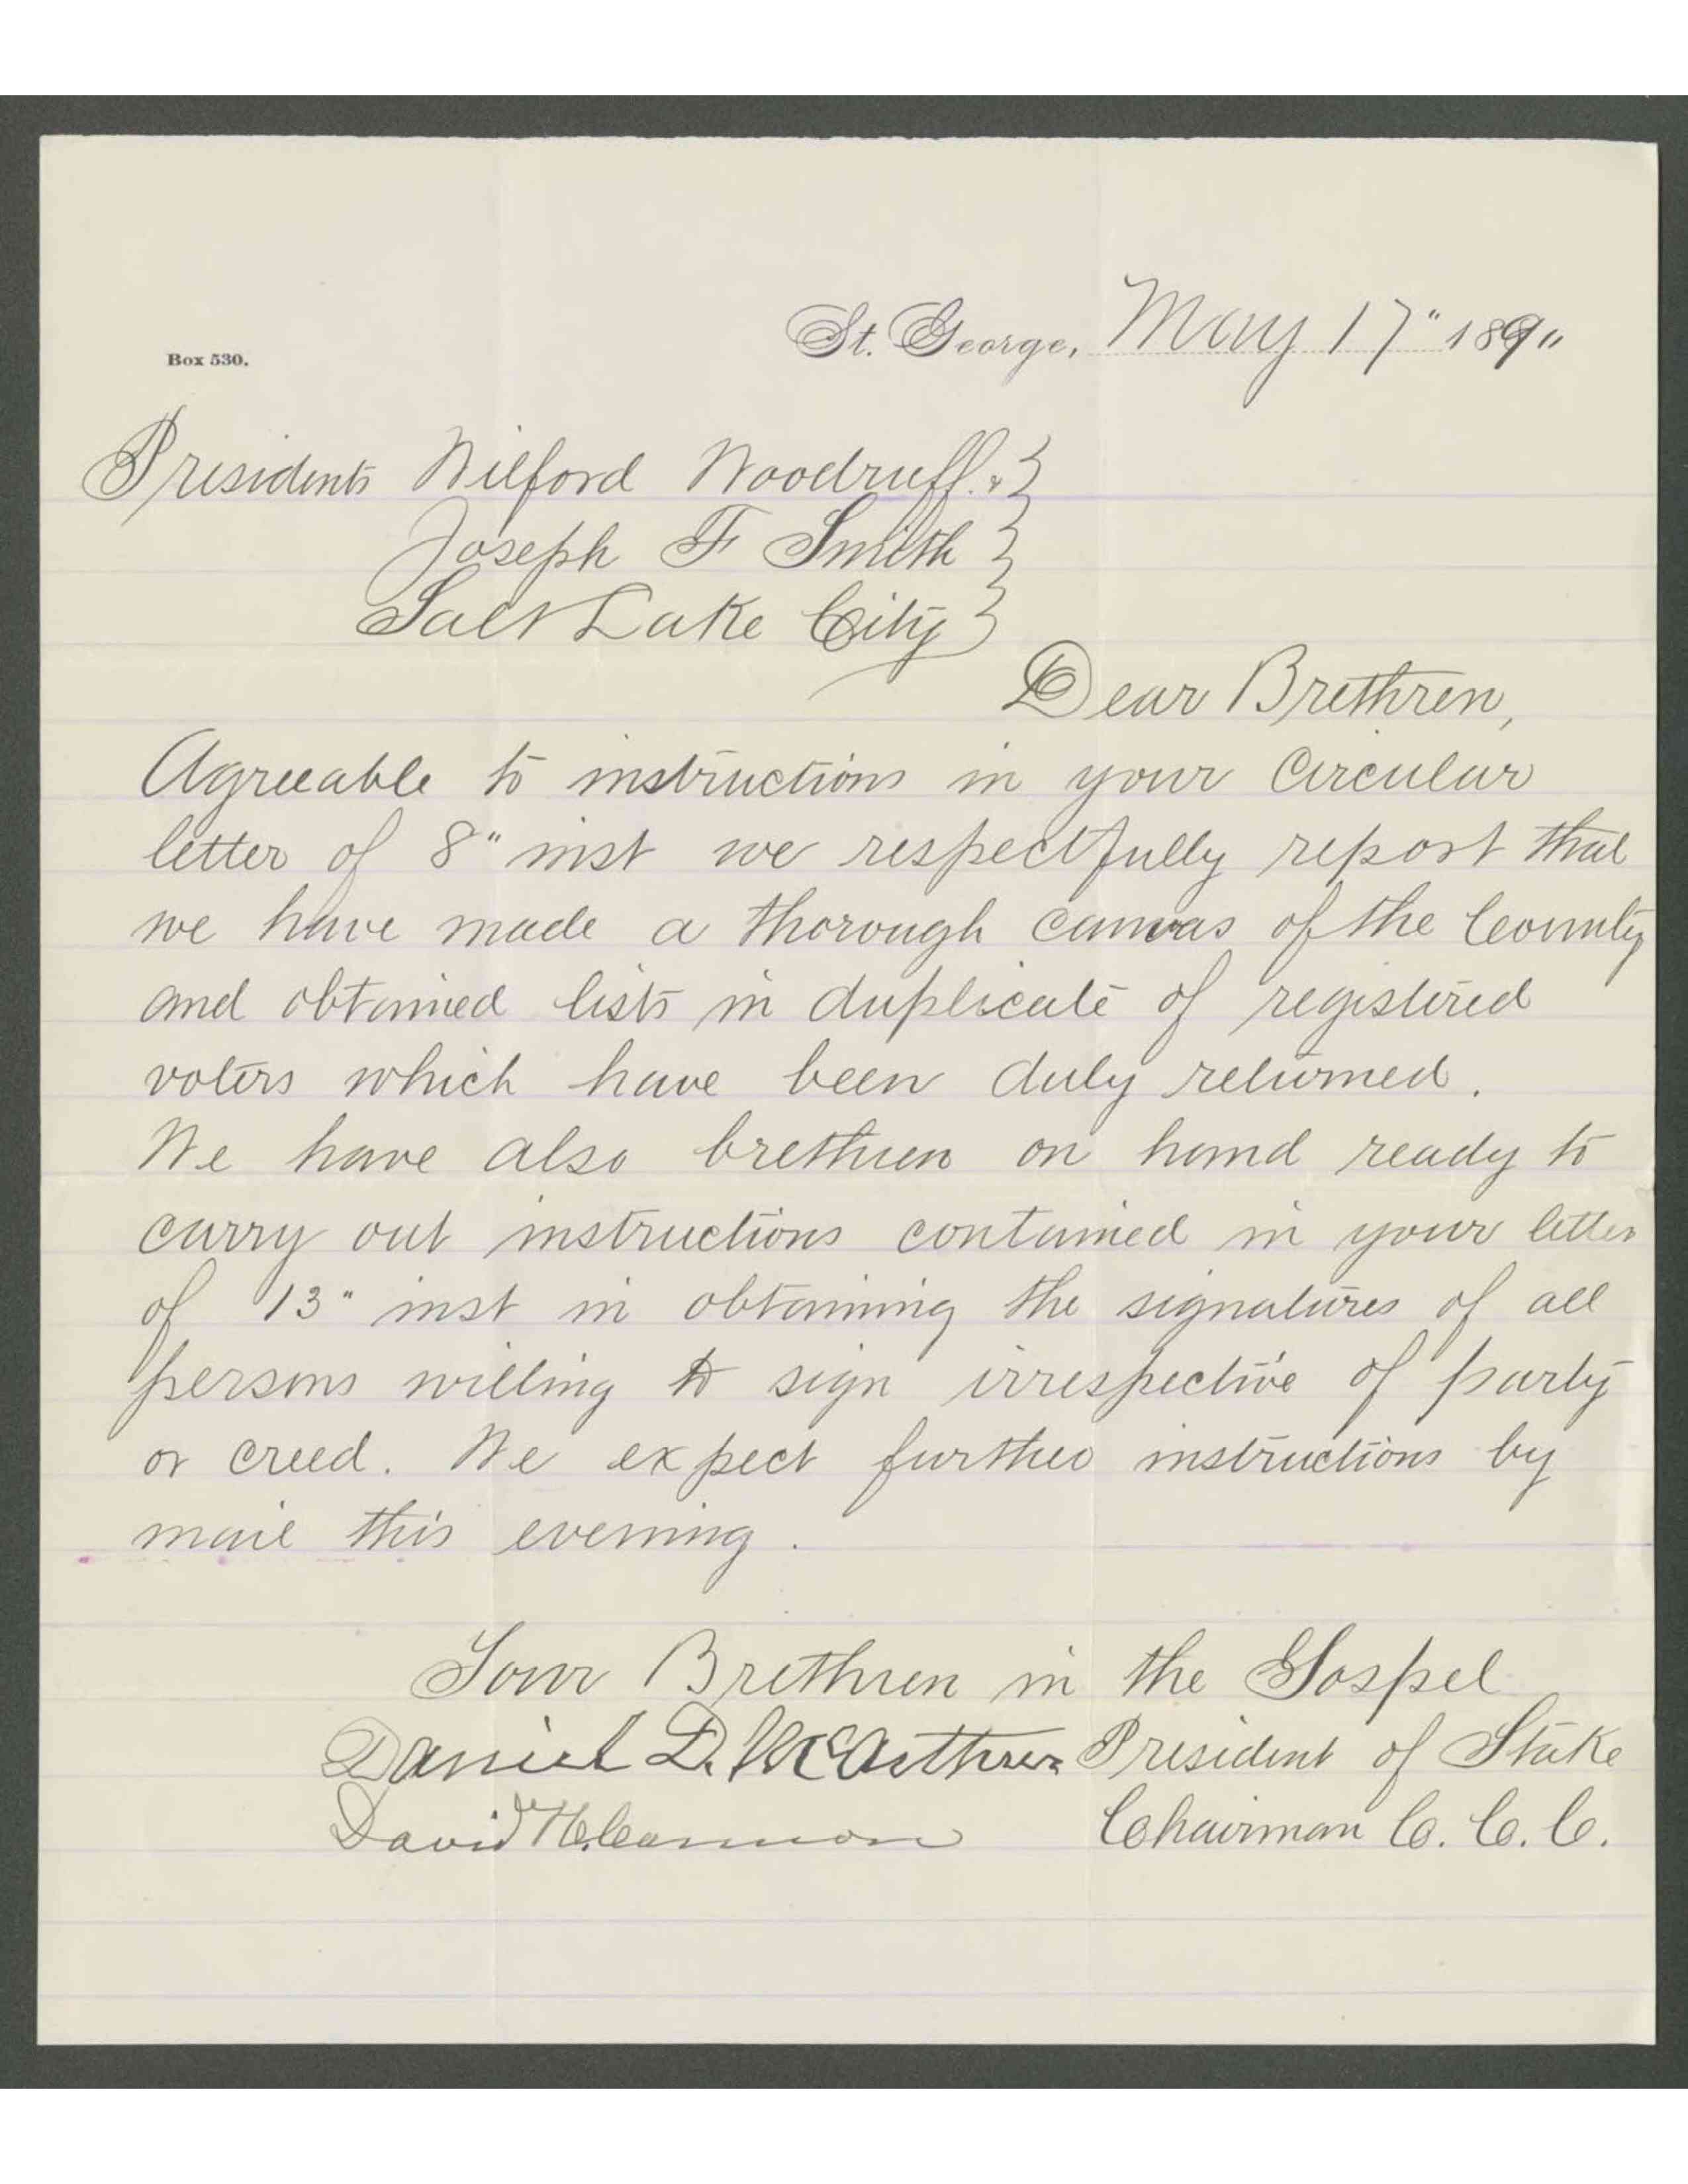 St. George, May 17" 189"
Box 530.
Presidents Wilford Woodruff. & }
Joseph F Smith }
Salt Lake City }
Dear Brethren,
Agreeable to instructions in your Circular
letter of 8" inst we respectfully report that
we have made a thorough canvas of the County
and obtained lists in duplicate of registered
voters which have been duly returned.
We have also brethren on hand ready to
carry out instructions contained in your letter
of 13" inst in obtaining the signatures of all
persons willing to sign irrespective of party
or creed. We expect further instructions by
mail this evening.
Your Brethren in the Gospel
Daniel D. McArthur President of Stake
David H. Cannon Chairman C. C. C.